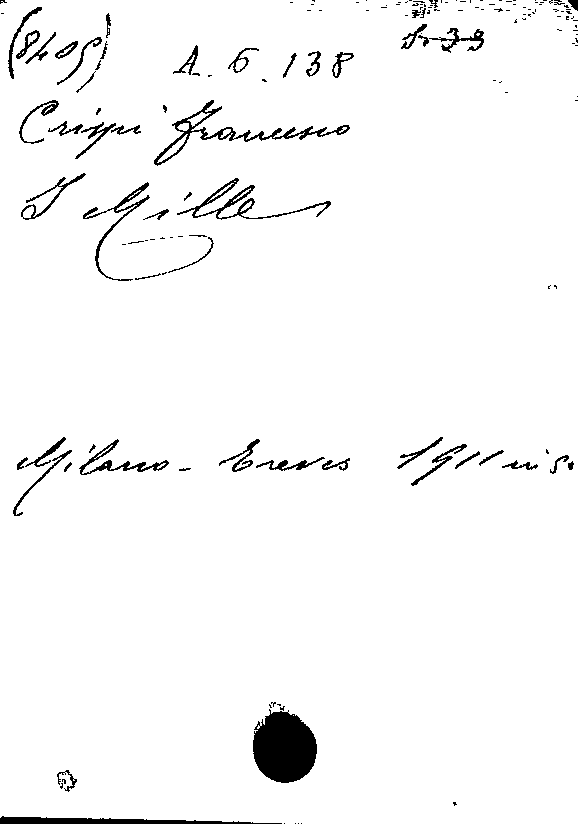 (8405) A. 6. 138
Crispi Francesco
I Mille
Milano - Treves 1911 in 8.